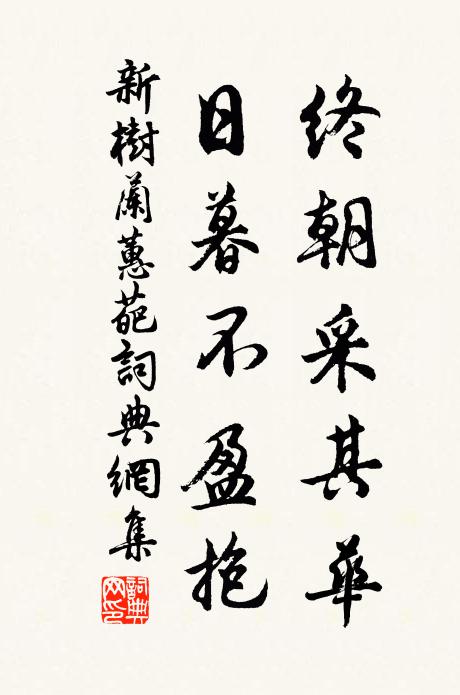 終朝采其華
日暮不盈抱
新樹蘭蕙葩詞典網集
詞典
网印